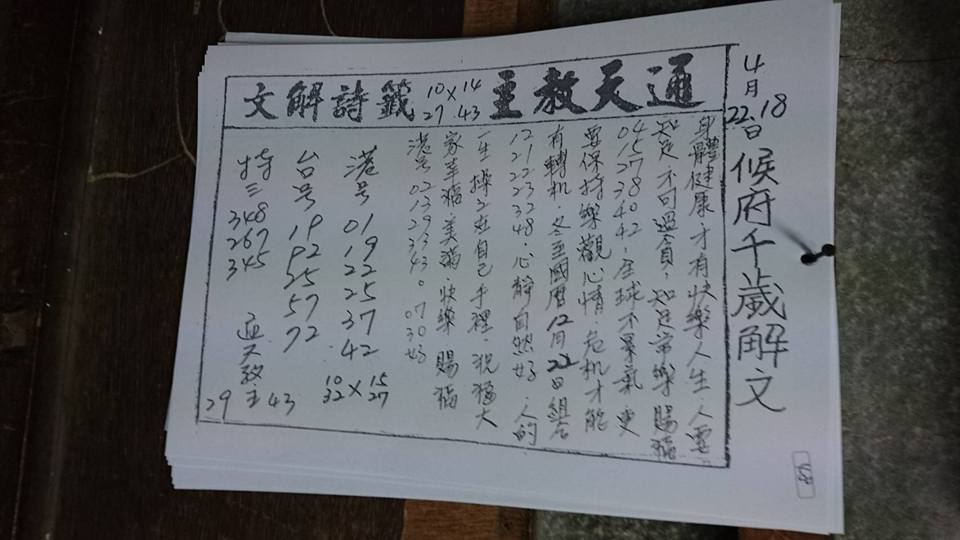 4月22.18日候府千歲解文
通天教主 10 27 × 14 43 籤詩解文
身體健康才有快樂人生.人要
知足.不可過貪.知足常樂賜福
04 15 27 38 40 42.全球不景氣更
要保持樂觀心情危机才能
有轉机 冬至國曆12月22日組合
12 21 22 23 32 48.心靜自然好.人的
一生操之在自己手裡.祝福大
家幸福.美滿快樂賜福
港号 02 13 29 33 43。07 30好
港号 01 19 22 25 37 42 10 32 × 15 27
台号 19 92 25 57 72
特三 348 267 345 通天教主
29 43